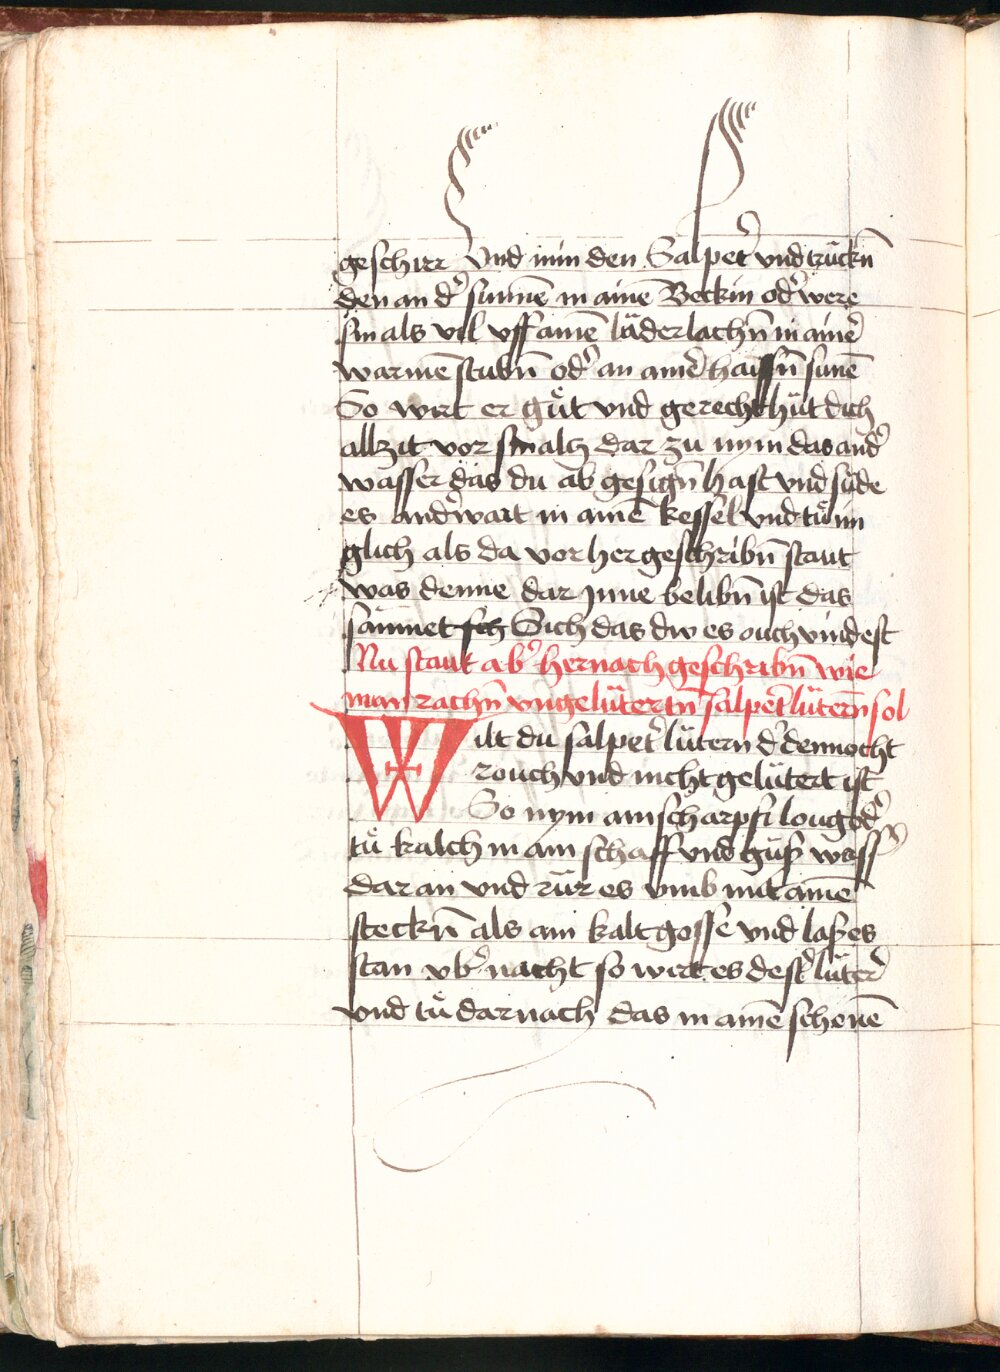 geschirr Vnd nim den Salpet͛ vnd trückn̄
den an d͛ sunnē in ainē Beckin od͛ were
sin als vil vff ainē läderlachn̄ in ainē͛
warmē stubn̄ od͛ an ainē͛ haissn̄ sunē
So wirt er gůt vnd gerecht hüt dich
allzit vor smaltz dar zů nym das and͛
wasser däs du ab gesign̄ hast vnd süde
es and͛wait in ainē kessel vnd tů im
glich als da vor her geschribn̄ staut
was denne dar Jnne belibn̄ ist das
sammet sch Sich das dir es ouch vindest
Nu staut ab͛ hernach geschribn̄ wie
man rachn̄ vngelütertn̄ salpet͛ lütern̄ sol
Wilt du salpet͛ lütern d͛ dennocht
rouch vnd nicht gelütert ist
So nym ain scharpfi loug od͛
tů kalch in ain schaff vnd güß wass͛
dar an vnd rür es vmb mit ainē
steckn̄ als ain kaltgosse vnd laß es
stan vb͛ nacht so wirt es dest͛ lüter͛
vnd tů darnach das in ainē schenē